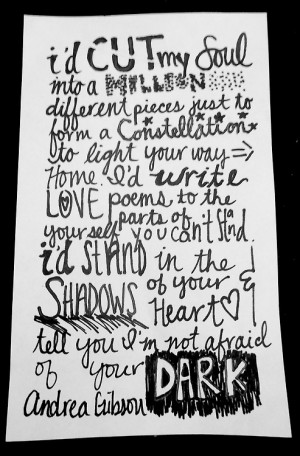 i'd CUT my Soul
into a MILLION
different pieces just to
form a Constellation
to light your way ⇒
Home. I'd write
LOVE poems to the
parts of
yourself you can't stand.
i'd STAND in the
SHADOWS of your
Heart &
tell you I'm not afraid
of your DARK
Andrea Gibson